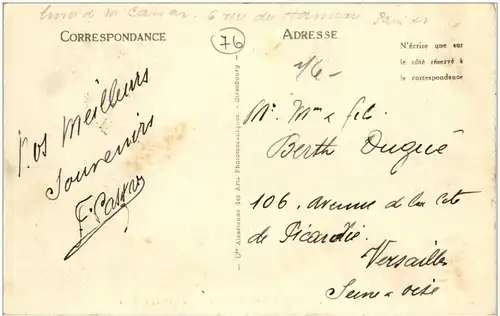 CORRESPONDANCE
76
ADRESSE
N'écrire que sur
le côté réservé à
la correspondance
Meilleurs
Souvenirs
Cie Alsacienne des Arts Photomécaniques - Strasbourg
Mr. Mme & fils
Berth Duqué
106. Avenue de la Côte
de Picardie.
Versailles
Seine & Oise